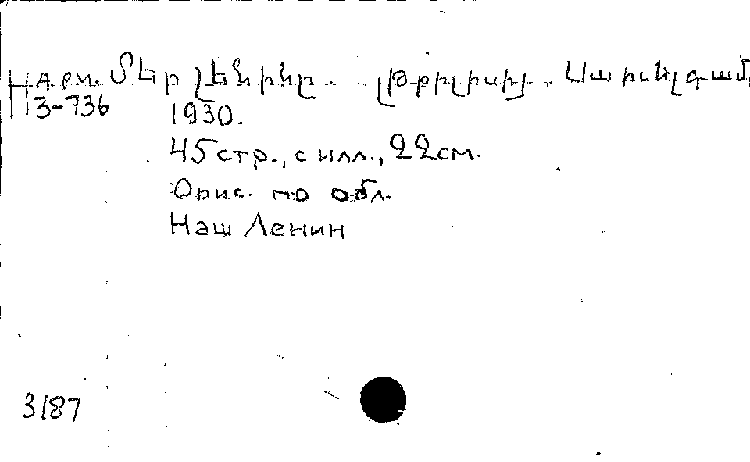 Н арм. Մեր Լենինը. Թիֆլիսի.
3-736
1930.
45 стр., с илл., 22 см.
Опис. по обл.
Наш Ленин
3187